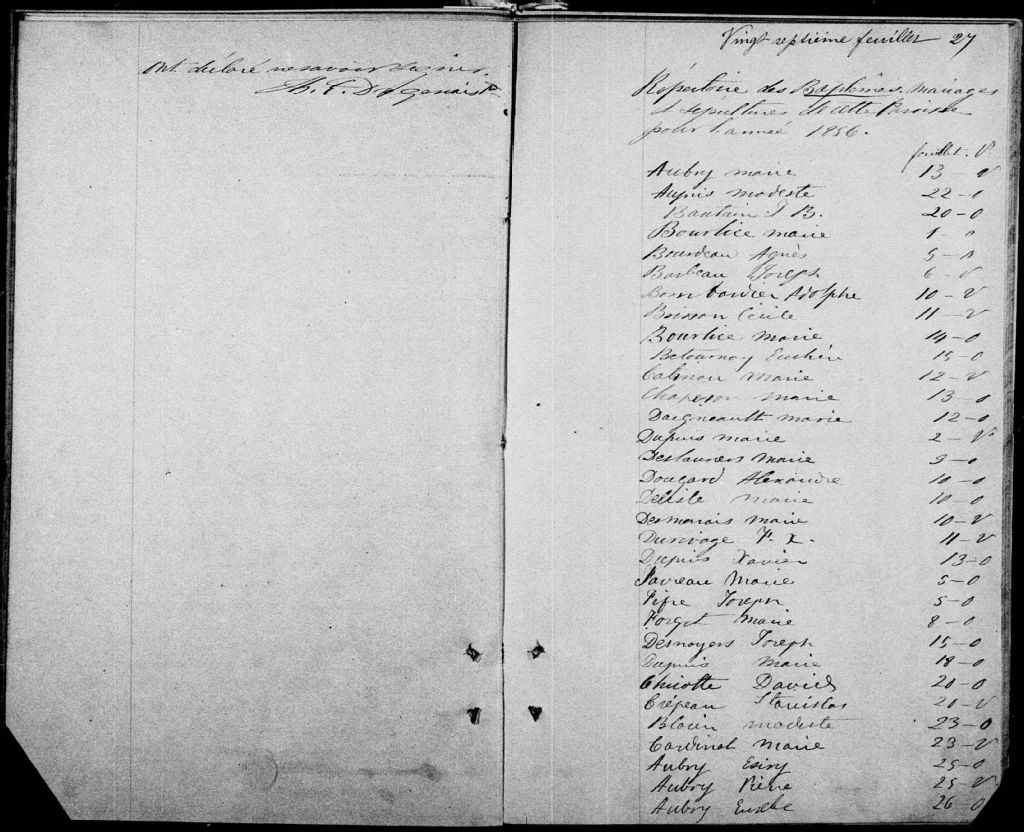 ont déclaré ne savoir signer.
Vingt septième feuillet 27
Répertoire des Baptêmes. mariages
& sépultures de cette Paroisse
pour l'année 1856.
feuillet. V.
Aubry marie 13 - V
Dupuis modeste 22 - 0
J B. 20 - 0
marie 1 - 0
Bourdeau Agnès 5 - 0
Barbeau Joseph 6 - V
Bombardier Adolphe 10 - V
Cécile 11 - V
marie 14 - 0
Betournay 15 - 0
marie 12 - V
marie 13 - 0
Daigneault marie 12 - 0
Dupuis marie 2 - V
Deslauriers marie 9 - 0
Dougard Alexandre 10 - 0
Delisle marie 10 - 0
Desmarais marie 10 - V
Durivage F. X. 11 - V
Dupuis Xavier 13 - 0
Favreau Marie 5 - 0
Joseph 5 - 0
Forget Marie 8 - 0
Desnoyers Joseph 15 - 0
Dupuis Marie 18 - 0
Chicotte David 20 - 0
Crépeau Stanislas 20 - V
Blouin modeste 23 - 0
Cardinal Marie 23 - V
Aubry 25 - 0
Aubry 25 - V
Aubry 26 - 0